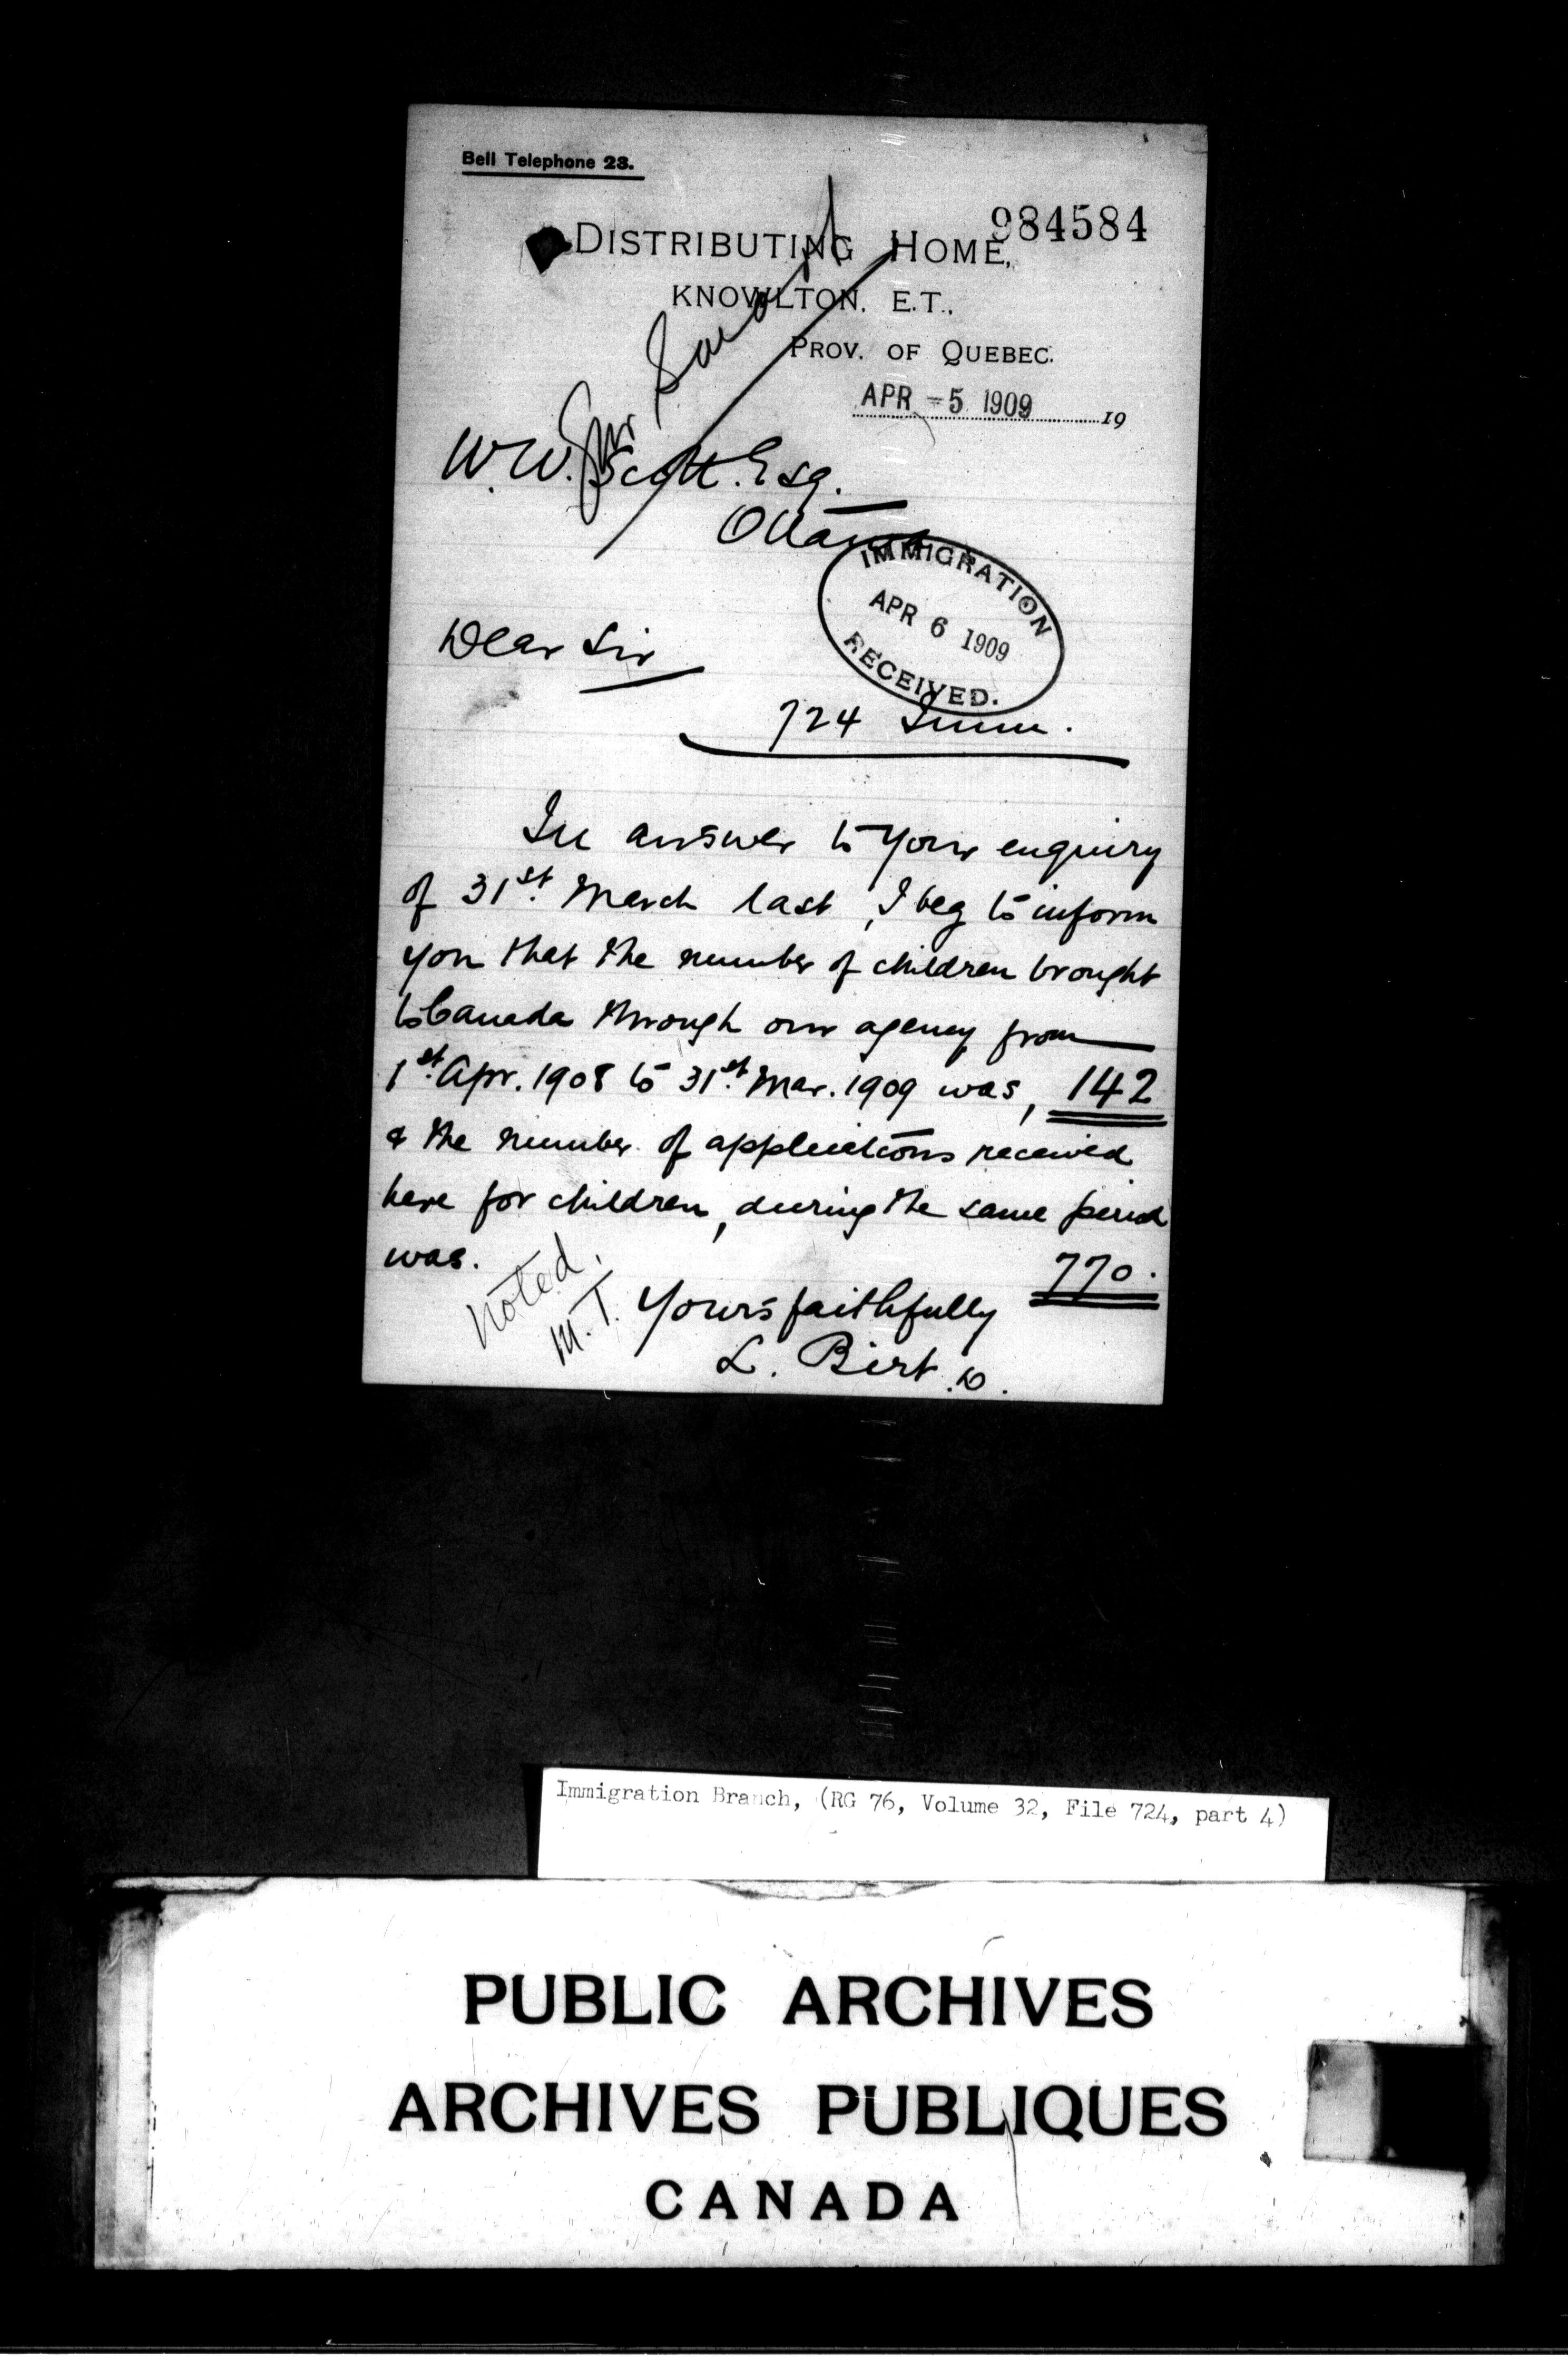 Bell Telephone 23.
984584
DISTRIBUTING HOME,
KNOWLTON, E.T.,
PROV. OF QUEBEC.
APR -5 1909 19
W.W. Scott. Esq.
Ottawa
IMMIGRATION
APR 6 1909
RECEIVED.
Dear Sir
724 Imm.
In answer to your enquiry
of 31st. March last, I beg to inform
you that the number of children brought
to Canada through our agency from
1st. Apr. 1908 to 31st. Mar. 1909 was, 142
& the number of applications received
here for children, during the same period
was. 770.
noted.
M.T.
Yours faithfully
L. Birt
Immigration Branch, (RG 76, Volume 32, File 724, part 4)
PUBLIC ARCHIVES
ARCHIVES PUBLIQUES
CANADA